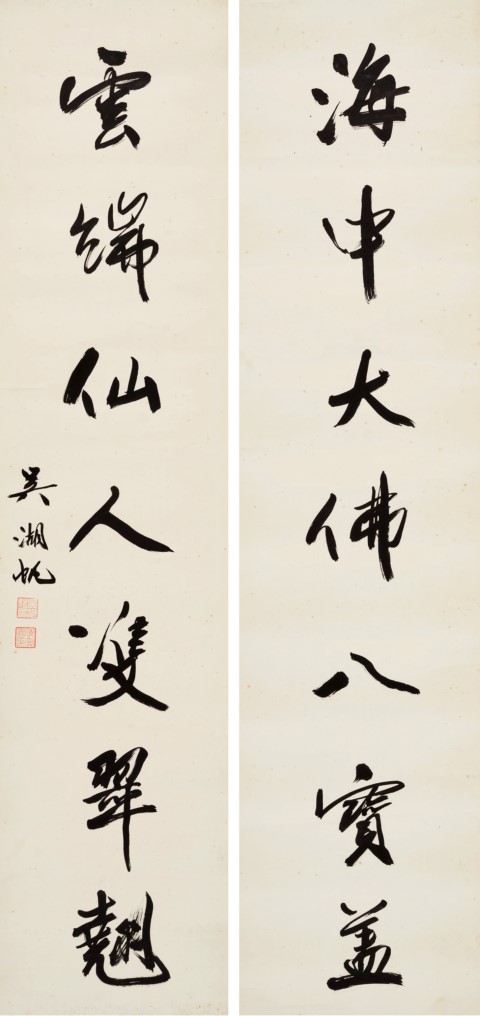 海中大佛八寶盖
雲端仙人雙翠翹
吳湖帆